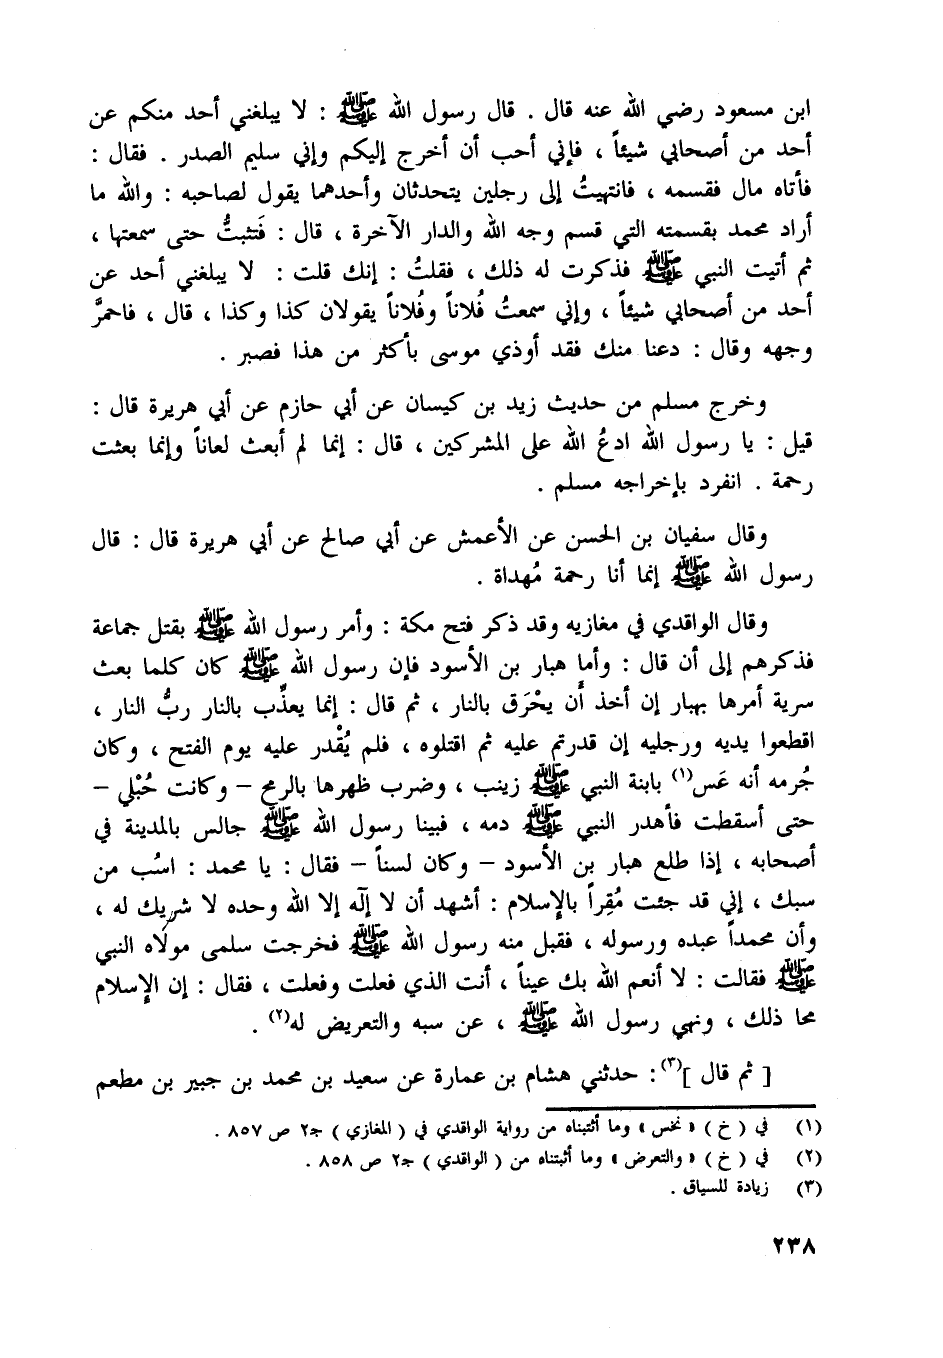 ابن مسعود رضي الله عنه قال . قال رسول الله ﷺ : لا يبلغني أحد منكم عن
أحد من أصحابي شيئاً ، فإني أحب أن أخرج إليكم وإني سليم الصدر . فقال :
فأتاه مال فقسمه ، فانتهيتُ إلى رجلين يتحدثان وأحدهما يقول لصاحبه : والله ما
أراد محمد بقسمته التي قسم وجه الله والدار الآخرة ، قال : فَتثبتُّ حتى سمعتها ،
ثم أتيت النبي ﷺ فذكرت له ذلك ، فقلتُ : إنك قلت : لا يبلغني أحد عن
أحد من أصحابي شيئاً ، وإني سمعتُ فُلاناً وفُلاناً يقولان كذا وكذا ، قال ، فاحمرَّ
وجهه وقال : دعنا منك فقد أوذي موسى بأكثر من هذا فصبر .
وخرج مسلم من حديث زيد بن كيسان عن أبي حازم عن أبي هريرة قال :
قيل : يا رسول الله ادعُ الله على المشركين ، قال : إنما لم أبعث لعاناً وإنما بعثت
رحمة . انفرد بإخراجه مسلم .
وقال سفيان بن الحسن عن الأعمش عن أبي صالح عن أبي هريرة قال : قال
رسول الله ﷺ إنما أنا رحمة مُهداة .
وقال الواقدي في مغازيه وقد ذكر فتح مكة : وأمر رسول الله ﷺ بقتل جماعة
فذكرهم إلى أن قال : وأما هبار بن الأسود فإن رسول الله ﷺ كان كلما بعث
سرية أمرها بهبار إن أخذ أن يحْرَق بالنار ، ثم قال : إنما يعذِّب بالنار ربُّ النار ،
اقطعوا يديه ورجليه إن قدرتم عليه ثم اقتلوه ، فلم يُقْدر عليه يوم الفتح ، وكان
جُرمه أنه عَس(١) بابنة النبي ﷺ زينب ، وضرب ظهرها بالرمح – وكانت حُبْلي –
حتى أسقطت فأهدر النبي ﷺ دمه ، فبينا رسول الله ﷺ جالس بالمدينة في
أصحابه ، إذا طلع هبار بن الأسود – وكان لسناً – فقال : يا محمد : اسُب من
سبك ، إني قد جئت مُقِراً بالإسلام : أشهد أن لا إلٓه إلا الله وحده لا شريك له ،
وأن محمداً عبده ورسوله ، فقبل منه رسول الله ﷺ فخرجت سلمى مولاه النبي
ﷺ فقالت : لا أنعم الله بك عيناً ، أنت الذي فعلت وفعلت ، فقال : إن الإسلام
محا ذلك ، ونهي رسول الله ﷺ ، عن سبه والتعريض له(٢) .
[ ثم قال ](٣) : حدثني هشام بن عمارة عن سعيد بن محمد بن جبير بن مطعم
(١) في ( خ ) « نخس » وما أثتبناه من رواية الواقدي في ( المغازي ) جـ٢ ص ٨٥٧ .
(٢) في ( خ ) « والتعرض » وما أثبتناه من ( الواقدي ) جـ٢ ص ٨٥٨ .
(٣) زيادة للسياق .
٢٣٨